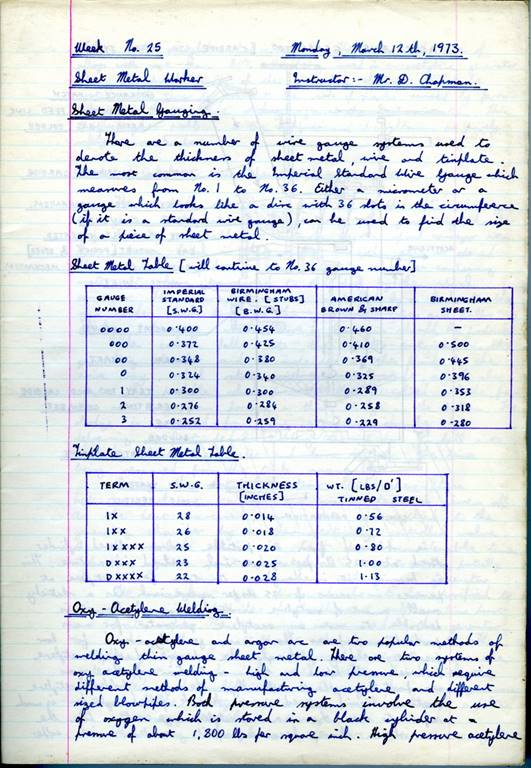 Week No. 25 Monday, March 12th, 1973.
Sheet Metal Worker Instructor:- Mr. D. Chapman.
Sheet Metal Gauging.
There are a number of wire gauge systems used to
denote the thickness of sheet metal, wire and tinplate.
The most common is the Imperial Standard Wire Gauge which
measures from No. 1 to No. 36. Either a micrometer or a
gauge which looks like a disc with 36 slots in the circumference
(if it is a standard wire gauge), can be used to find the size
of a piece of sheet metal.
Sheet Metal Table [will continue to No. 36 gauge number]
GAUGE NUMBER IMPERIAL STANDARD [S.W.G.] BIRMINGHAM WIRE. [STUBS] [B.W.G.] AMERICAN BROWN & SHARP BIRMINGHAM SHEET.
0000 0.400 0.454 0.460 —
000 0.372 0.425 0.410 0.500
00 0.348 0.380 0.369 0.445
0 0.324 0.340 0.325 0.396
1 0.300 0.300 0.289 0.353
2 0.276 0.284 0.258 0.318
3 0.252 0.259 0.229 0.280
Tinplate Sheet Metal Table.
TERM S.W.G. THICKNESS [INCHES] WT. [LBS/□'] TINNED STEEL
IX 28 0.014 0.56
IXX 26 0.018 0.72
IXXXX 25 0.020 0.80
DXXX 23 0.025 1.00
DXXXX 22 0.028 1.13
Oxy-Acetylene Welding.
Oxy-acetylene and argon arc are two popular methods of
welding thin gauge sheet metal. There are two systems of
oxy acetylene welding - high and low pressure, which require
different methods of manufacturing acetylene and different
sized blowpipes. Both pressure systems involve the use
of oxygen which is stored in a black cylinder at a
pressure of about 1,800 lbs per square inch. High pressure acetylene